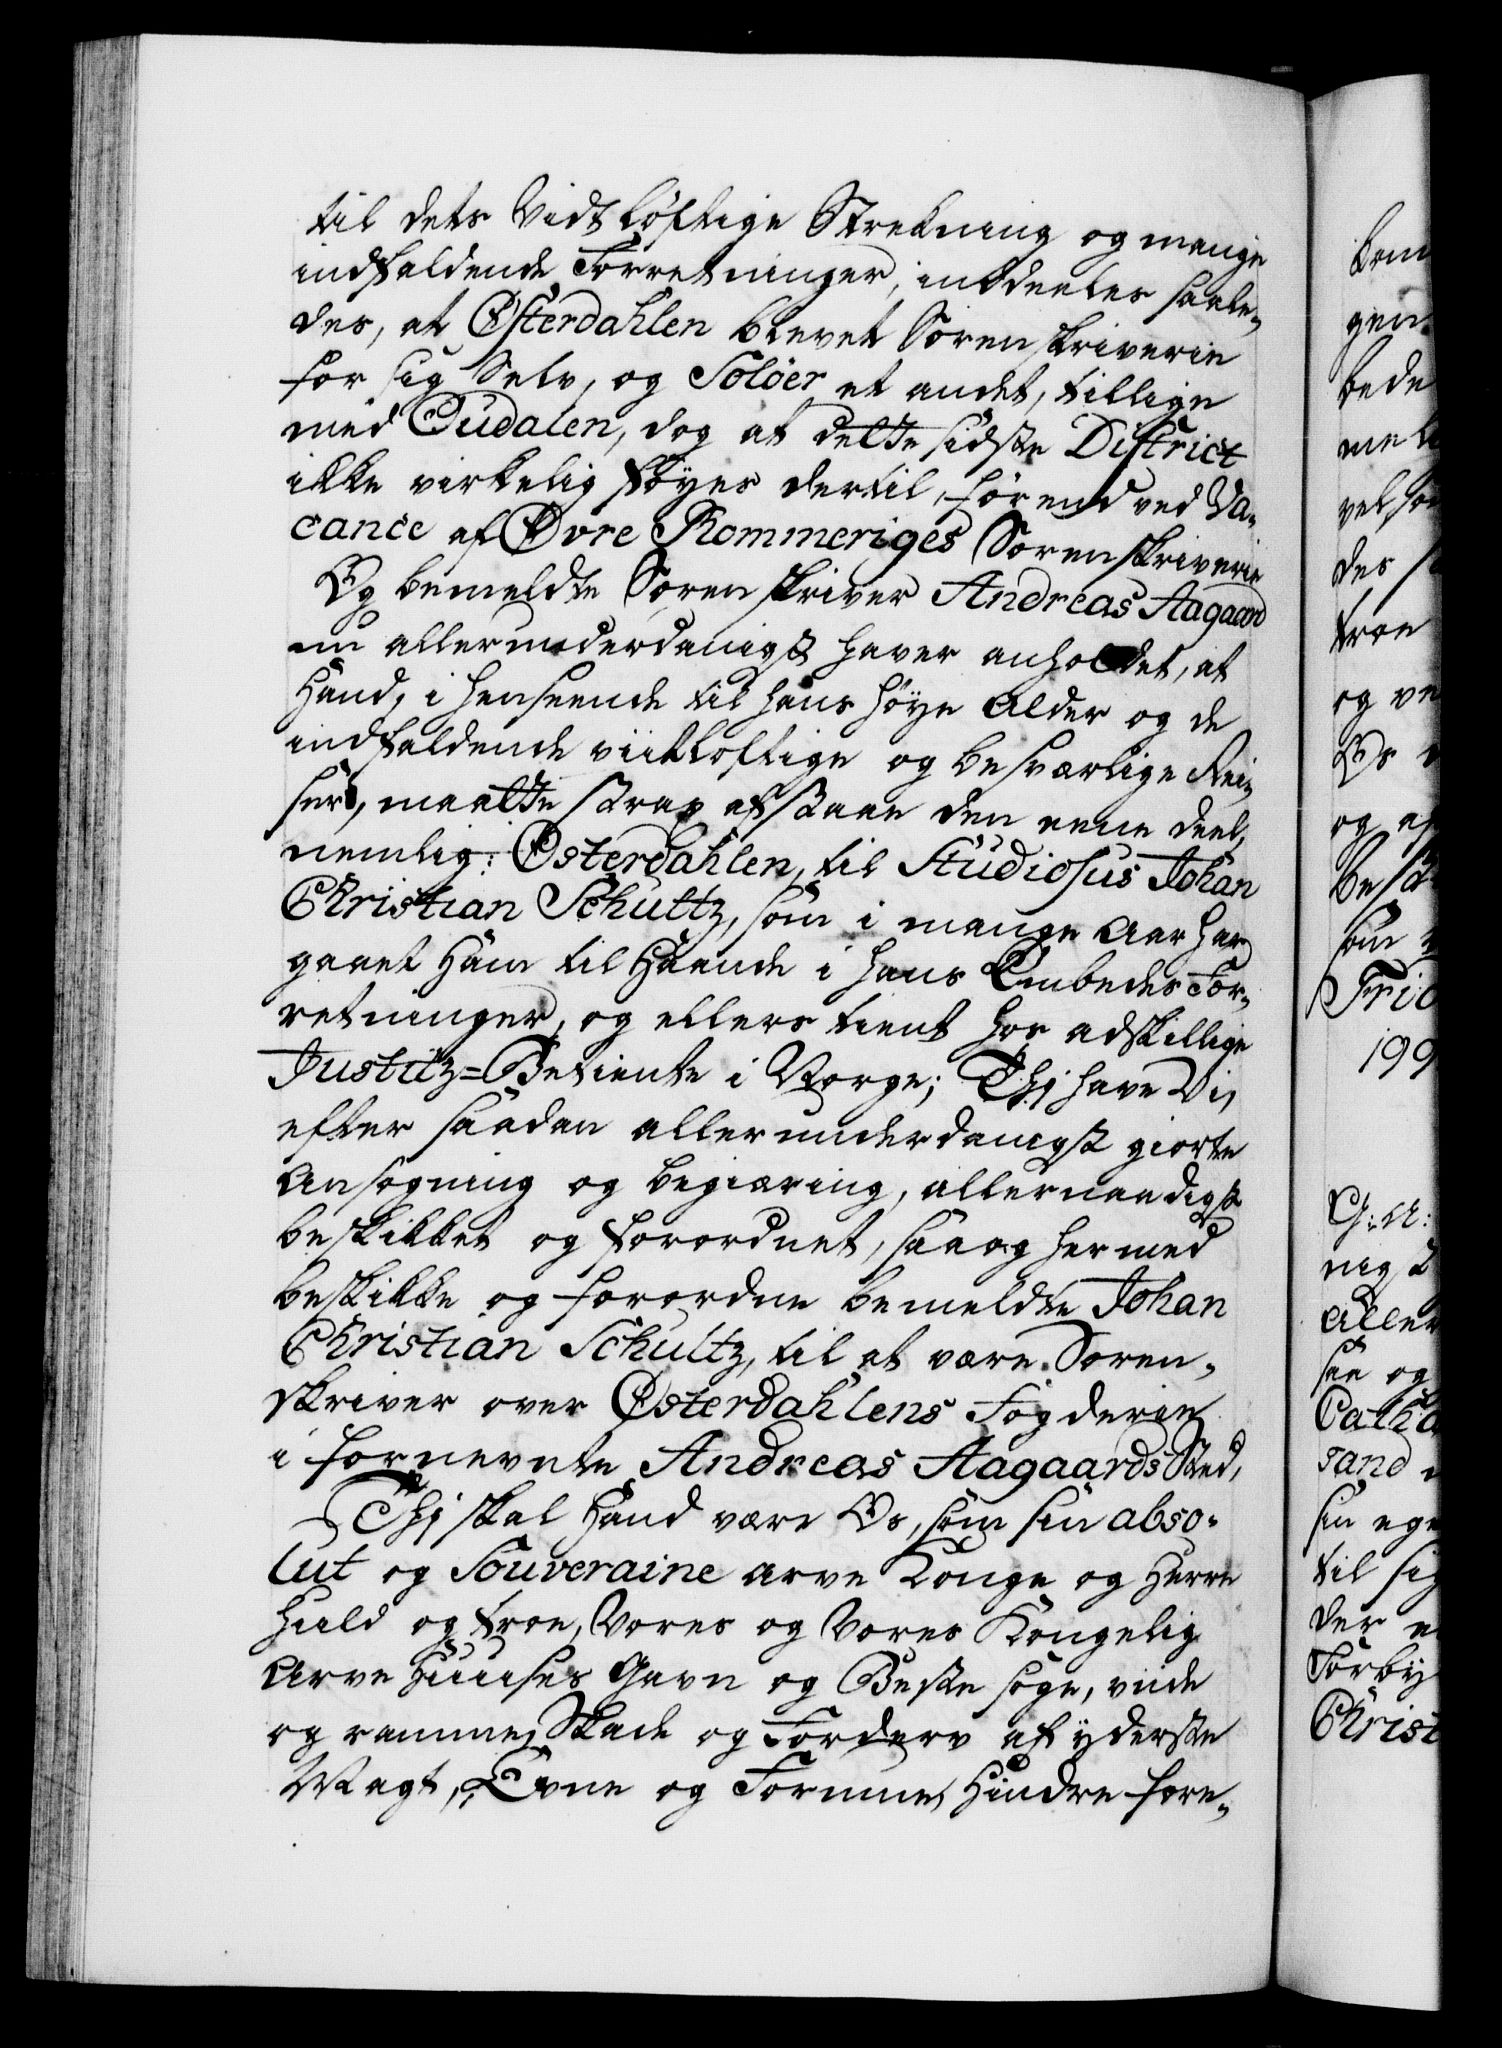 til dets Vidtløftige Strekning og mange
indfaldende Forretninger, inddeeles saale,
des, at Østerdahlen blevet Sorenskriverie
for sig Selv, og Solöer et andet, tillige
med Oudalen, dog at dette sidste District
ikke virkelig föyes dertil, förend ved Va,
cance af Øvre Rommeriges Sorenskriverie
Og bemeldte Sorenskriver Andreas Aagaard
nu allerunderdanigst haver anholdet, at
Hand, i henseende til hans höye Alder og de
indfaldende viitløftige og besværlige Rei,
ser, maatte strax afstaae den eene deel,
nemlig: Østerdahlen, til Studiosus Johan
Christian Schultz, som i mange Aar har
gaaet Ham til Haande i hans Embedes For,
retninger, og ellers tient hos adskillige
Justitz=Betiente i Norge; Thj have Vi,
efter saadan allerunderdanigst giorte
Ansøgning og begiæring, allernaadigst
beskikket og forordnet, saa og hermed
beskikke og forordne bemeldte Johan
Christian Schultz, til at være Soren,
skriver over Østerdahlens Fogderie
i fornevnte Andreas Aagaards Sted,
Thj skal Hand være Os, som sin abso,
lut og Souveraine Arve Konge og Herre
huld og troe, Vores og Vores Kongelig
Arve Huuses Gavn og Beste söge, viide
og ramme, Skade og Forderv af yderste
Magt, Evne og Formue, Hindre fore,
kom
gen.
bede
vel
des
troe
og ve
Os
og af
som
Frid
199
G: A:
nigst
Aller
saa og
Cath
sand
sin ege
til sig
der
Forby
Christ